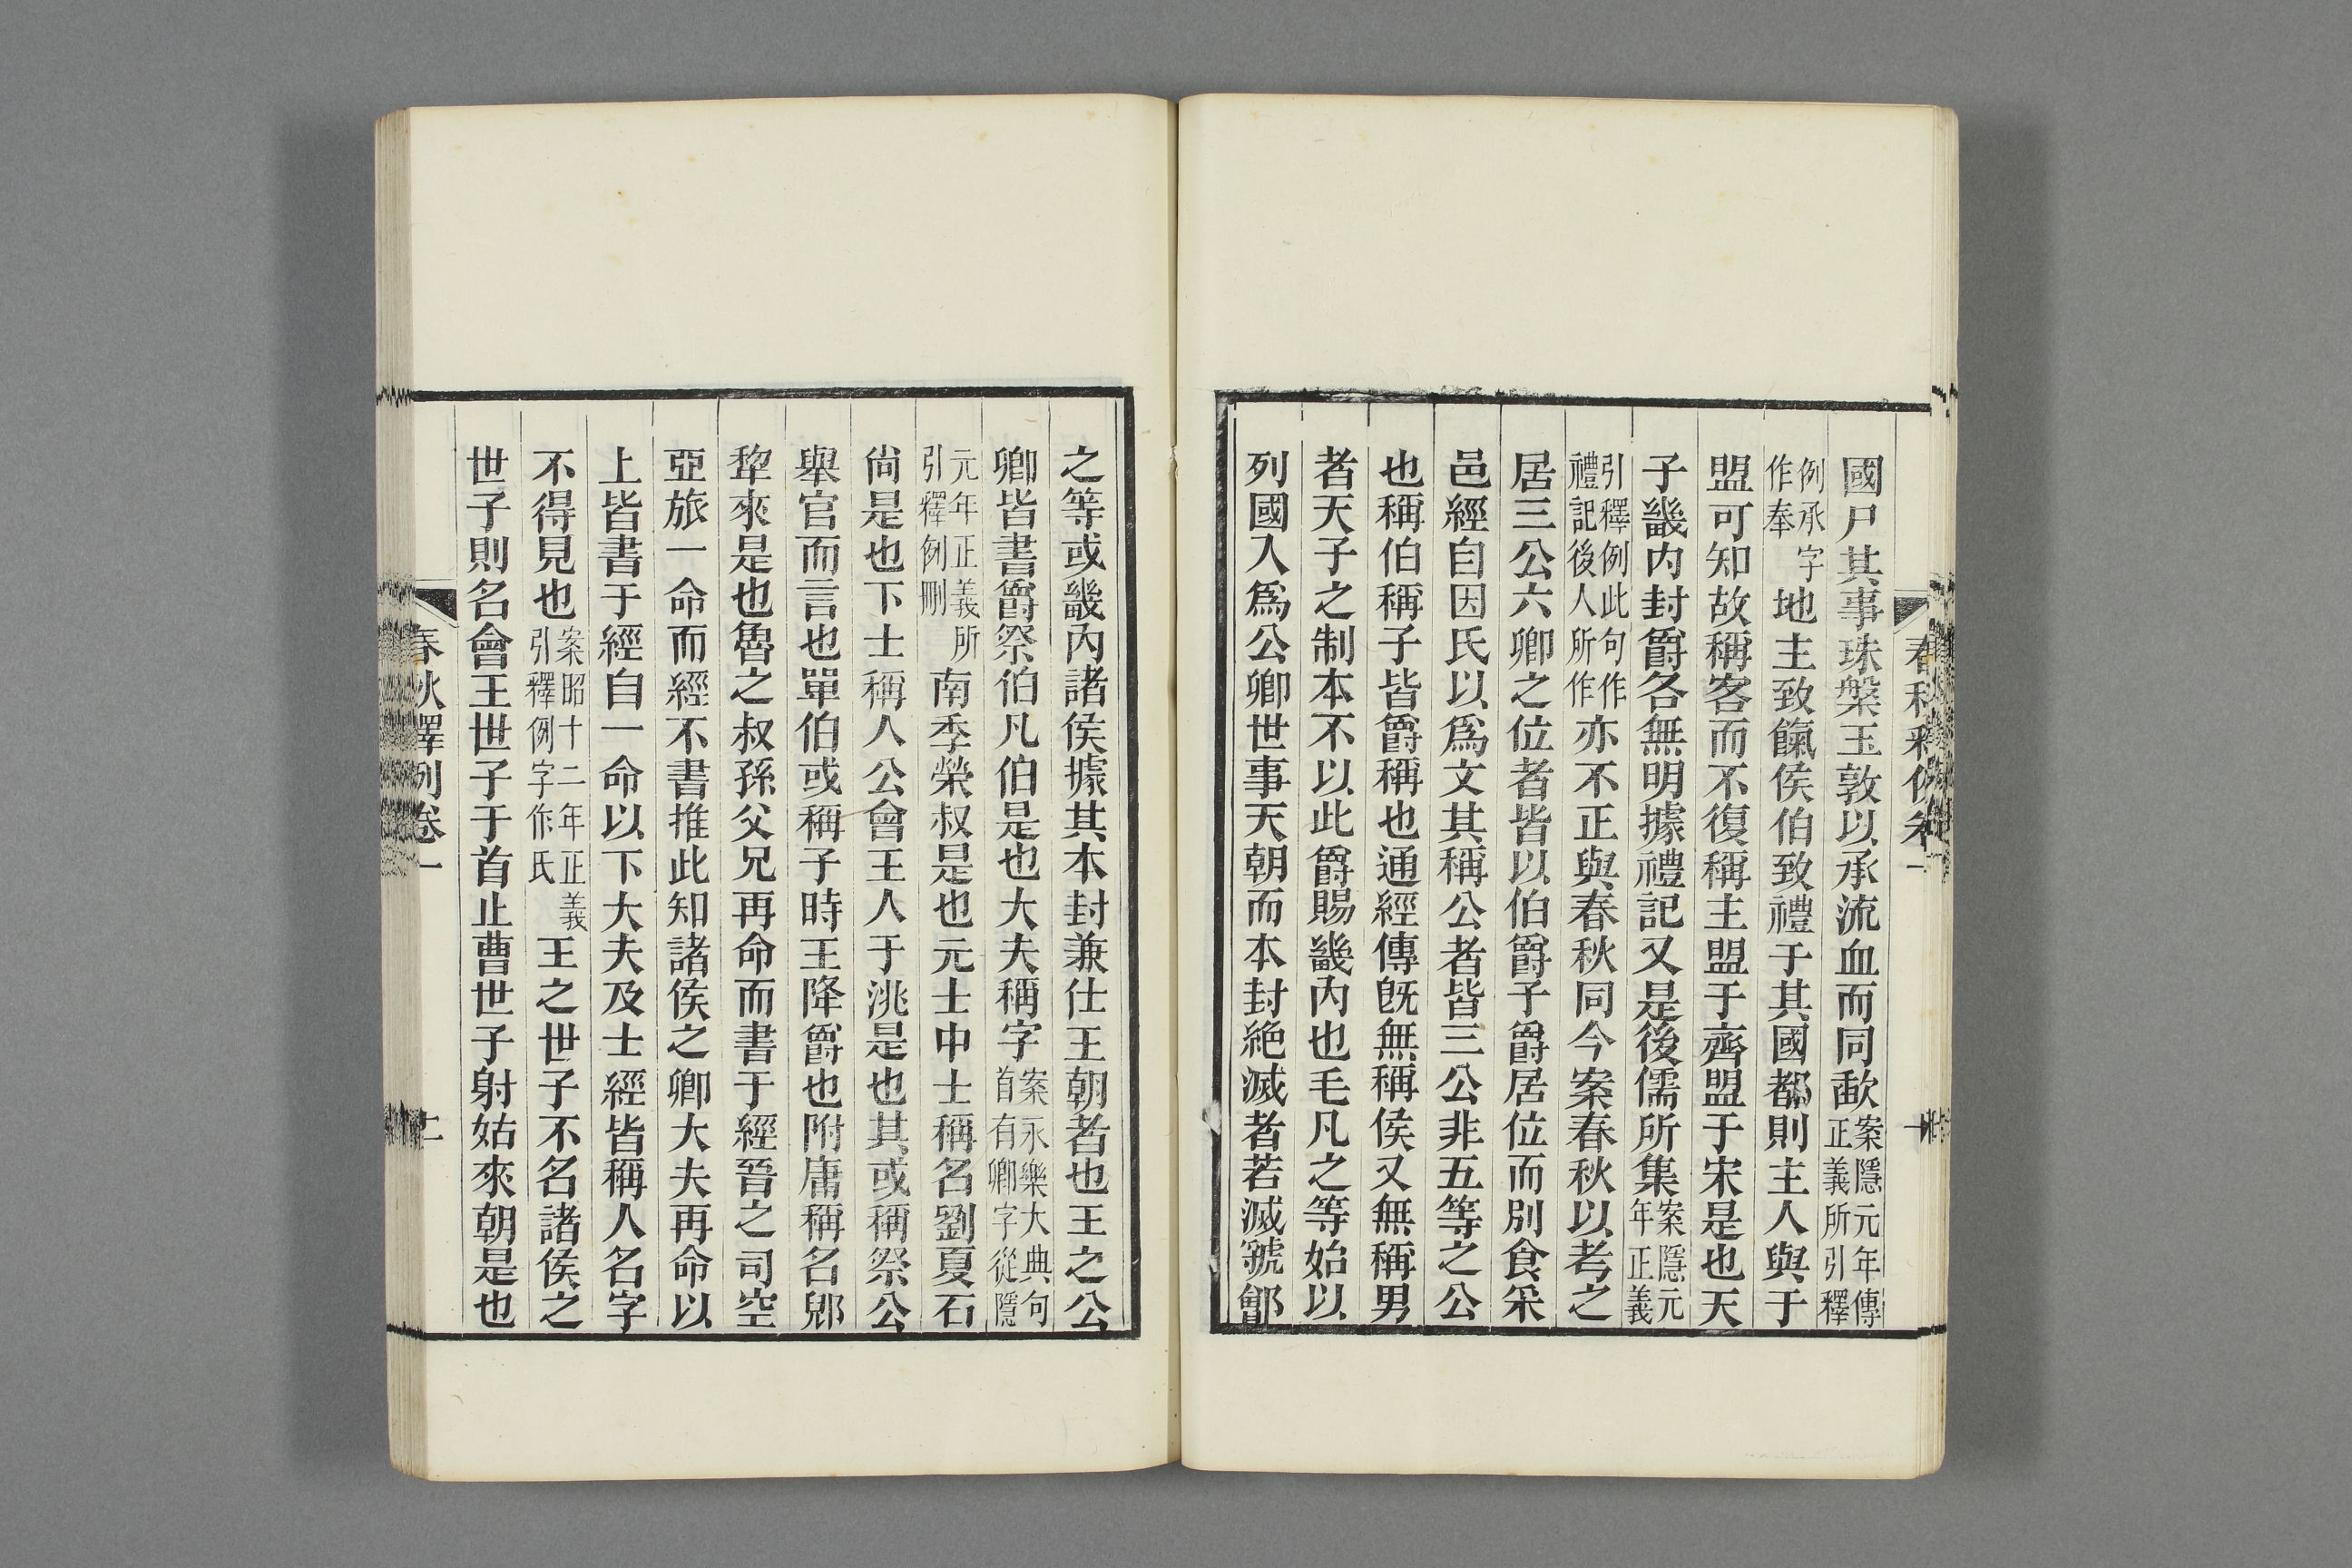 國尸其事珠槃玉敦以承流血而同歃案隱元年傳正義所引釋
例承字作奉地主致餼侯伯致禮于其國都則主人與于
盟可知故稱客而不復稱主盟于齊盟于宋是也天
子畿内封爵各無明據禮記又是後儒所集案隱元年正義
引釋例此句作禮記後人所作亦不正與春秋同今案春秋以考之
居三公六卿之位者皆以伯爵子爵居位而別食采
邑經自因氏以爲文其稱公者皆三公非五等之公
也稱伯稱子皆爵稱也通經傳旣無稱侯又無稱男
者天子之制本不以此爵賜畿内也毛凡之等始以
列國入爲公卿世事天朝而本封絶滅者若滅虢鄶
之等或畿内諸侯據其本封兼仕王朝者也王之公
卿皆書爵祭伯凡伯是也大夫稱字案永樂大典句首有卿字從隱
元年正義所引釋例刪南季榮叔是也元士中士稱名劉夏石
尙是也下士稱人公會王人于洮是也其或稱祭公
舉官而言也單伯或稱子時王降爵也附庸稱名郳
犂來是也魯之叔孫父兄再命而書于經晉之司空
亞旅一命而經不書推此知諸侯之卿大夫再命以
上皆書于經自一命以下大夫及士經皆稱人名字
不得見也案昭十二年正義引釋例字作氏王之世子不名諸侯之
世子則名會王世子于首止曹世子射姑來朝是也
春秋釋例卷一